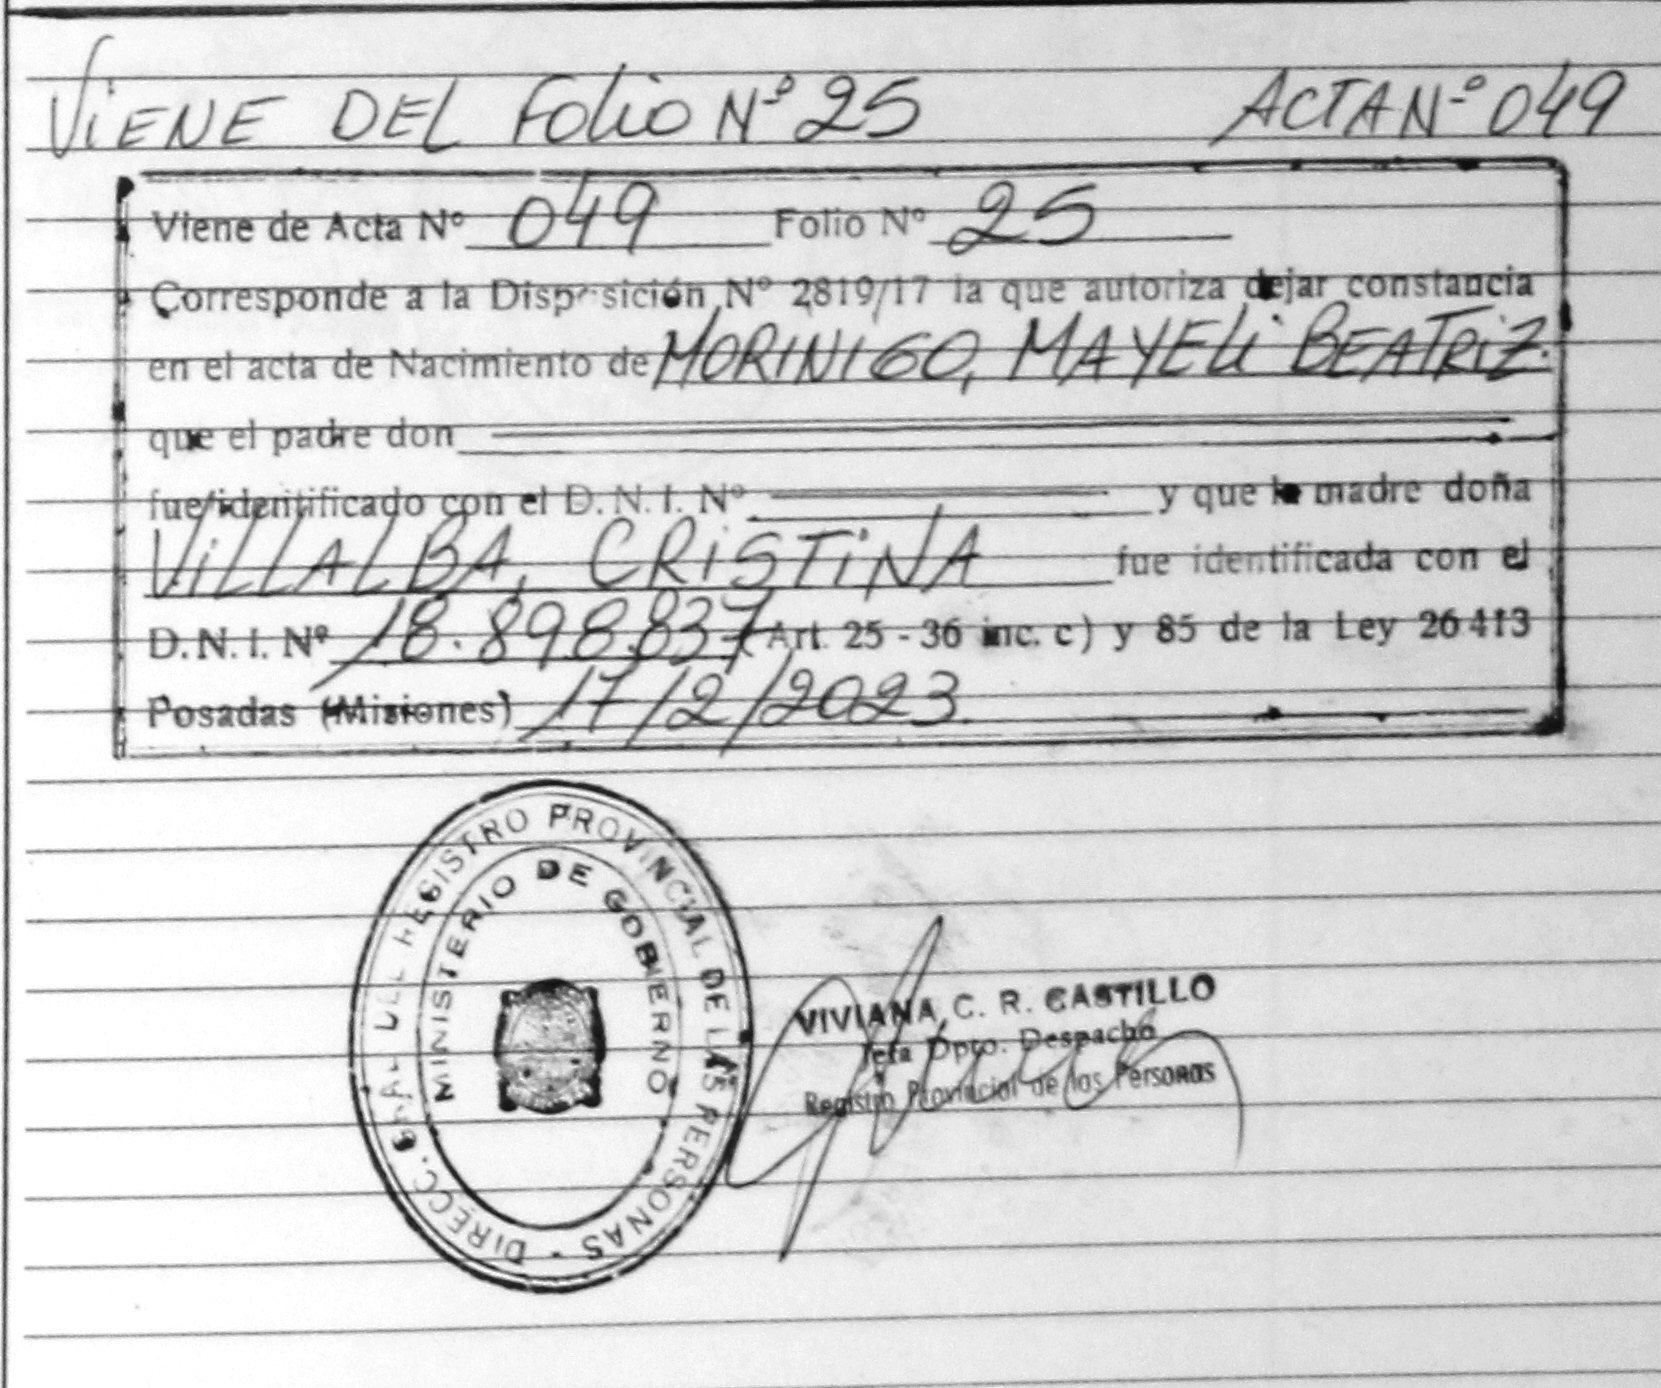 ViENE DEL Folio Nº 25 ACTA Nº 049
Viene de Acta Nº 049 Folio Nº 25
Corresponde a la Disposición Nº 2819/17 la que autoriza dejar constancia
en el acta de Nacimiento de MORINIGO, MAYELi BEATRiZ.
que el padre don
fue identificado con el D.N.I. Nº y que la madre doña
ViLLALBA, CRiSTiNA fue identificada con el
D.N.I. Nº 18.898.837 Art. 25 - 36 inc. c) y 85 de la Ley 26413
Posadas (Misiones) 17/2/2023
DIRECC. GRAL DEL REGISTRO PROVINCIAL DE LAS PERSONAS -
MINISTERIO DE GOBIERNO
VIVIANA, C. R. CASTILLO
Jefa Dpto. Despacho
Registro Provincial de las Personas